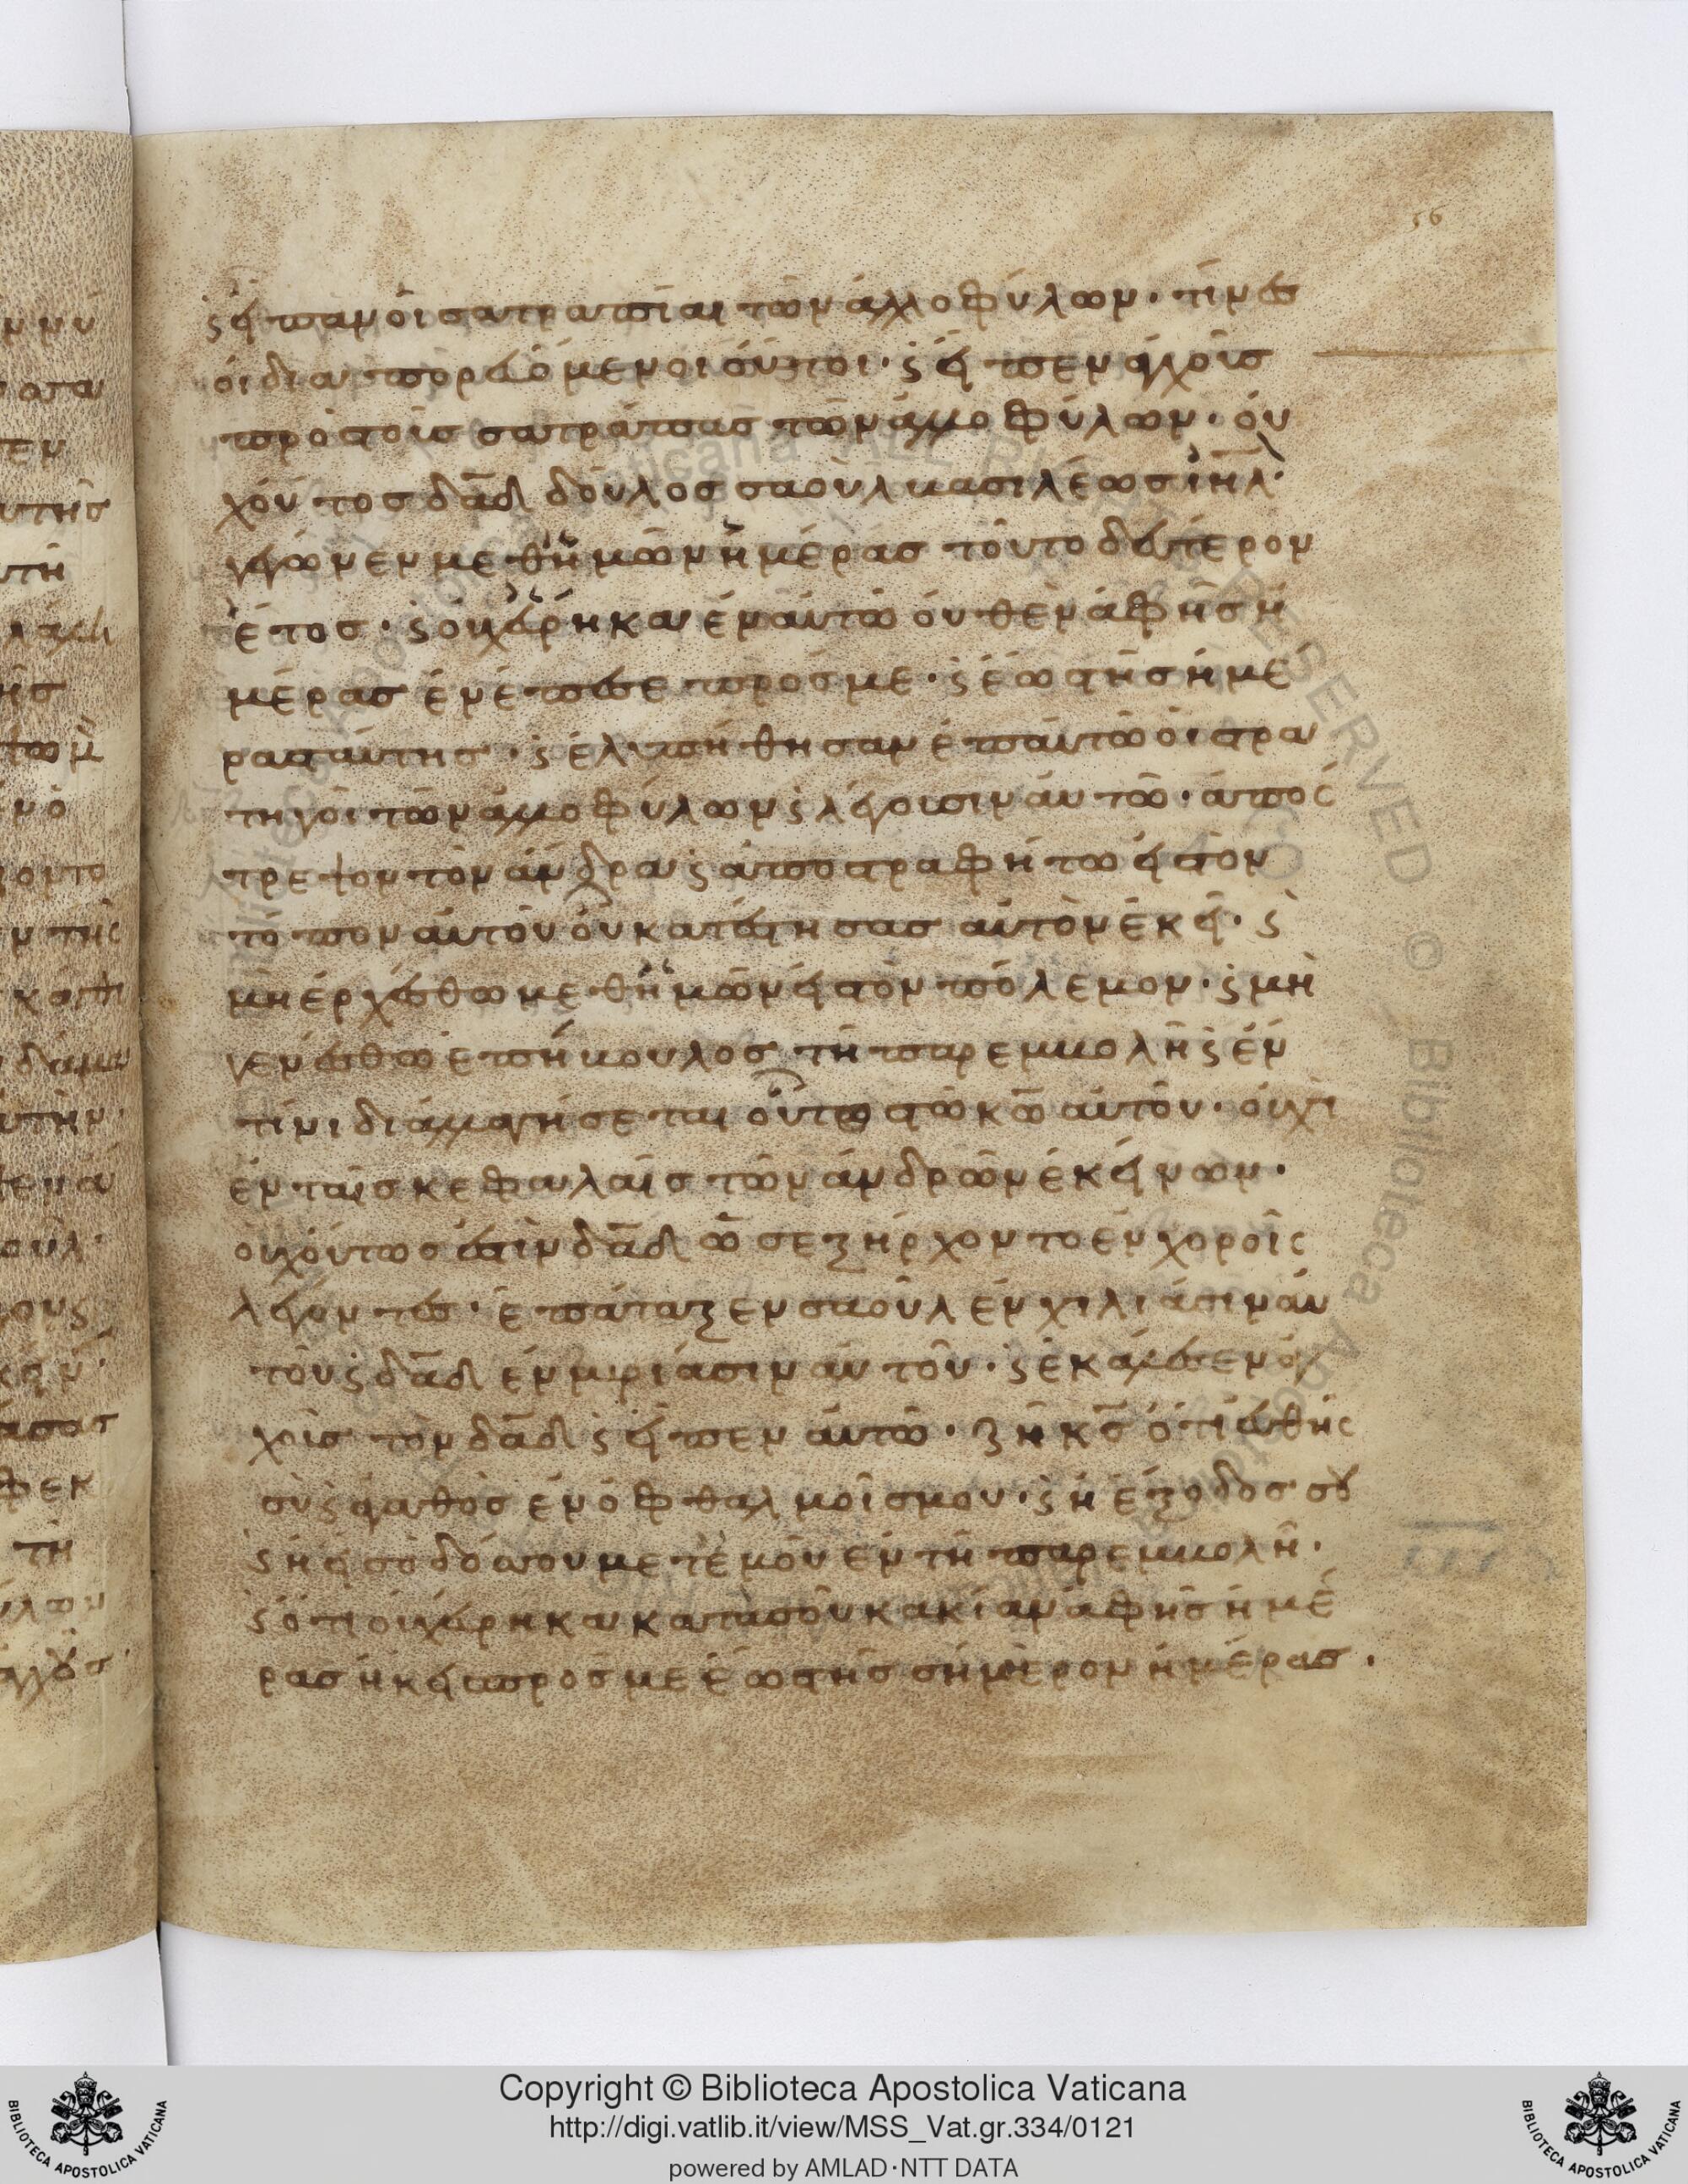 56
ϛ εἶπαν οἱ σατραπίαι τῶν ἀλλοφύλων· τίνες
οἱ διαπορευόμενοι οὗτοι· ϛ εἶπεν ἀγχοῦς
πρὸς τοὺς σατράπας τῶν ἀλλοφύλων· οὐ
χ οὗτος δ̅α̅δ̅ δοῦλος σαοὺλ βασιλέως ι̅η̅λ̅·
γέγωνεν μεθ ἡμῶν ἡμέρας τοῦτο δεύτερον
ἔτος· ϛ οὐχ εὕρηκα ἐν αὐτῶ οὐθὲν ἀφ ἧς ἡ
μέρας ἐνέπεσε πρός με· ϛ ἕως τῆς ἡμέ
ρας ταύτης· ϛ ἐλυπήθησαν ἐπ αὐτῶ οἱ στρα
τηγοὶ τῶν ἀλλοφύλων ϛ λέγουσιν αὐτῶ· ἀπόσ
τρεψον τὸν ἄνδρα ϛ ἀποστραφήτω εἰς τὸν
τόπον αὐτοῦ οὗ κατέστησας αὐτὸν ἐκεῖ· ϛ
μὴ ἐρχέσθω μεθ ἡμῶν εἰς τὸν πόλεμον· ϛ μὴ
γενέσθω ἐπήβουλος τῆ παρεμβολῆ ϛ ἐν
τίνι διαλλαγήσεται οὗτος τῶ κ̅ω̅ αὐτοῦ· οὐχὶ
ἐν ταῖς κεφαλαῖς τῶν ἀνδρῶν ἐκείνων·
οὐχ οὗτος ἐστὶν δ̅α̅δ̅ ὧ ἐξήρχοντο ἐν χοροῖς
λέγοντες· ἐπάταξεν σαοὺλ ἐν χιλιάσιν αὐ
τοῦ ϛ δ̅α̅δ̅ ἐν μυριάσιν αὐτοῦ· ϛ ἐκάλεσεν ἀγ
χοῦς τὸν δ̅α̅δ̅ ϛ εἶπεν αὐτῶ· ζῆ κ̅ς̅ ὅτι εὐθὴς
σὺ ϛ ἀγαθὸς ἐν ὀφθαλμοῖς μου· ϛ ἡ ἔξοδος σου
ϛ ἡ εἴσοδός σου μετ ἐμοῦ ἐν τῆ παρεμβολῆ·
ϛ ὅτι οὐχ εὕρηκα κατὰ σοῦ κακίαν ἀφ ἧς ἡμέ
ρας ἥκει πρός με ἕως τῆς σήμερον ἡμέρας·
Copyright © Biblioteca Apostolica Vaticana
http://digi.vatlib.it/view/MSS_Vat.gr.334/0121
powered by AMLAD·NTT DATA
BIBLIOTECA APOSTOLICA VATICANA
BIBLIOTECA APOSTOLICA VATICANA